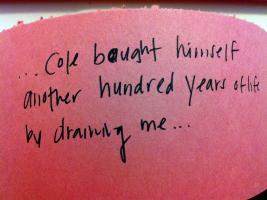 ...Cole bought himself
another hundred years of life
by draining me...